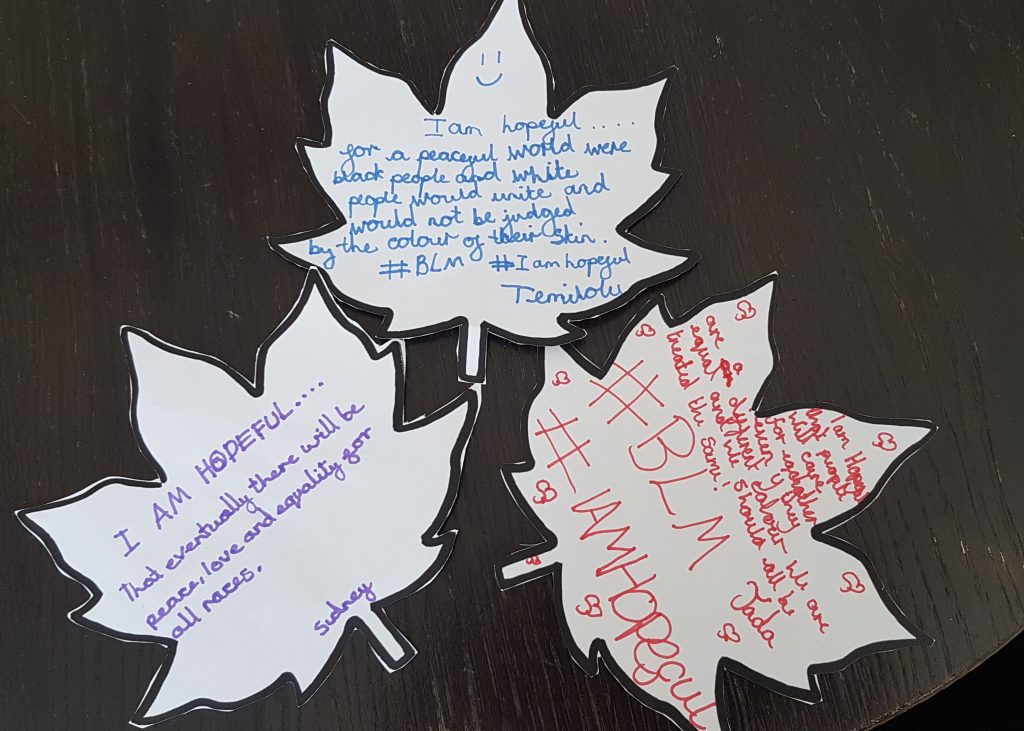 I am hopeful ....
for a peaceful world were
black people and white
people would unite and
would not be judged
by the colour of their skin.
#BLM #I am hopeful
Temilolu
I AM HOPEFUL....
That eventually there will be
peace, love and equality for
all races.
Sidney
I am Hopeful
that people
will care
for eachother
even if they
are a different colour we are
equal and we should all be
treated the same!
Jada
#BLM
#IAMHOPEFUL